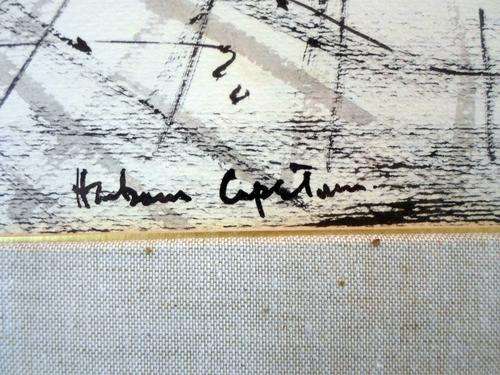 Harbour Captain